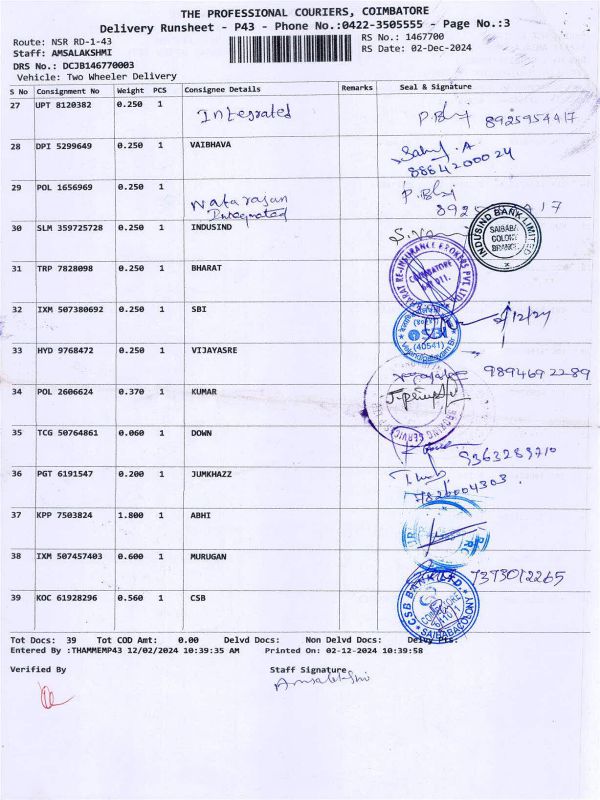 THE PROFESSIONAL COURIERS, COIMBATORE
Delivery Runsheet - P43 - Phone No.:0422-3505555 - Page No.:3
Route: NSR RD-1-43
RS No.: 1467700
Staff: AMSALAKSHMI
RS Date: 02-Dec-2024
DRS No.: DCJB146770003
Vehicle: Two Wheeler Delivery
S No Consignment No Weight PCS Consignee Details Remarks Seal & Signature
27 UPT 8120382 0.250 1 Integrated 8925954417
28 DPI 5299649 0.250 1 VAIBHAVA
8864200024
29 POL 1656969 0.250 1
Natarasan
Integrated
30 SLM 359725728 0.250 1 INDUSIND
INDUSIND BANK LIMITED
SAIBABA
COLONY
BRANCH
31 TRP 7828098 0.250 1 BHARAT
BHARAT RE-INSURANCE BROKERS PVT LTD
COIMBATORE
32 IXM 507380692 0.250 1 SBI 2/12/24
SBI
(40541)
33 HYD 9768472 0.250 1 VIJAYASRE
9894692289
34 POL 2606624 0.370 1 KUMAR
35 TCG 50764861 0.060 1 DOWN
9363289710
36 PGT 6191547 0.200 1 JUMKHAZZ
7820004303
37 KPP 7503824 1.800 1 ABHI
38 IXM 507457403 0.600 1 MURUGAN 7373012265
39 KOC 61928296 0.560 1 CSB
CSB BANK LTD
COIMBATORE
SAIBABACOLONY
Tot Docs: 39 Tot COD Amt: 0.00 Delvd Docs: Non Delvd Docs: Delvy Pts:
Entered By :THAMMEMP43 12/02/2024 10:39:35 AM Printed On: 02-12-2024 10:39:58
Verified By Staff Signature
Amsalakshmi